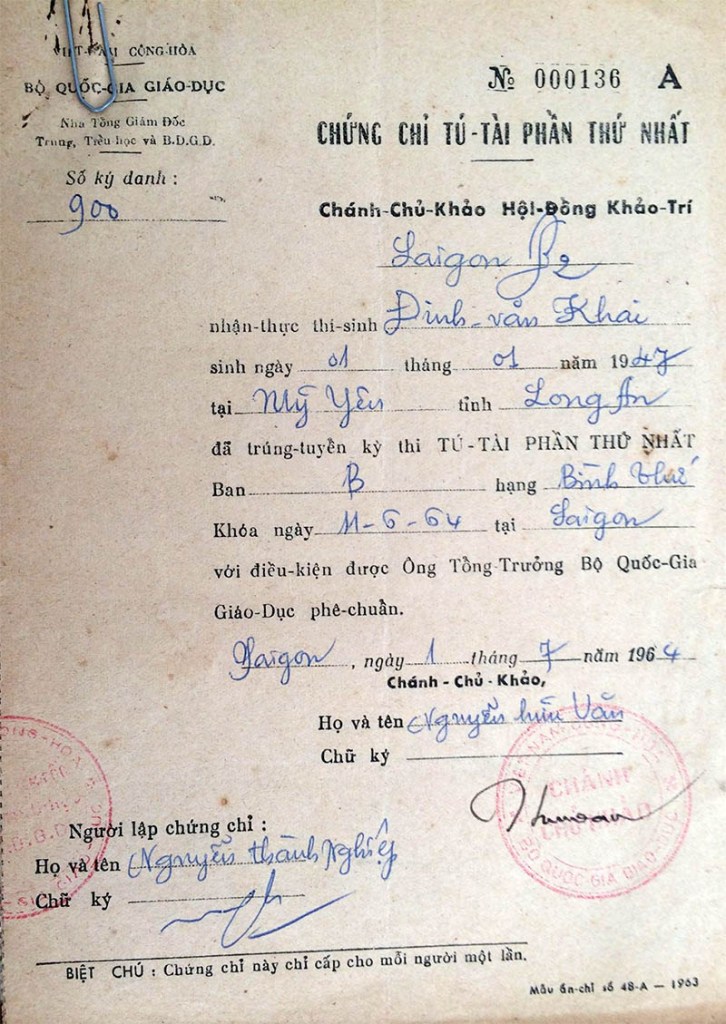 VIỆT-NAM CỘNG-HÒA
BỘ QUỐC-GIA GIÁO-DỤC
Nha Tổng Giám Đốc
Trung, Tiểu-học và B.D.G.D.
Số ký danh :
900
№ 000136 A
CHỨNG CHỈ TÚ-TÀI PHẦN THỨ NHẤT
Chánh-Chủ-Khảo Hội-Đồng Khảo-Trí
Saigon B2
nhận-thực thí-sinh Đinh-văn Khai
sinh ngày 01 tháng 01 năm 1947
tại Mỹ Yên tỉnh Long An
đã trúng-tuyển kỳ thi TÚ-TÀI PHẦN THỨ NHẤT
Ban B hạng Bình thứ
Khóa ngày 11-6-64 tại Saigon
với điều-kiện được Ông Tổng-Trưởng Bộ Quốc-Gia
Giáo-Dục phê-chuẩn.
Saigon, ngày 1 tháng 7 năm 1964
Chánh-Chủ-Khảo,
Họ và tên Nguyễn hữu Văn
Chữ ký
VIỆT NAM CỘNG HÒA
CHÁNH
CHỦ KHẢO
BỘ QUỐC GIA GIÁO
Người lập chứng chỉ :
Họ và tên Nguyễn thành Nghiệp
Chữ ký
BIỆT CHÚ : Chứng chỉ này chỉ cấp cho mỗi người một lần.
Mẫu ấn-chỉ số 48-A — 1963